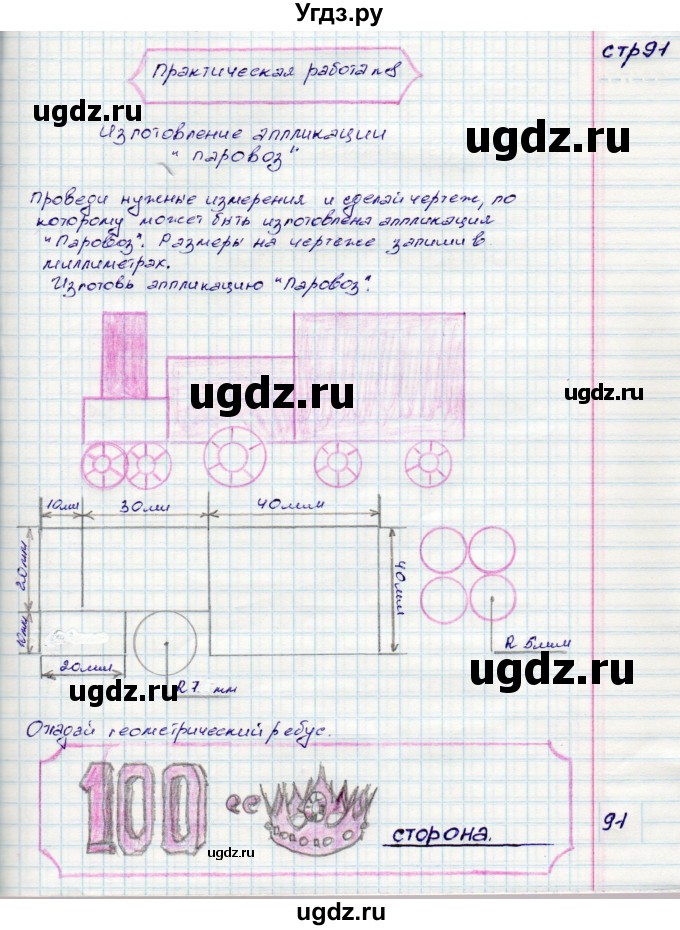 Угдз.ру
стр91
Практическая работа №8
ugdz.ru
ugdz.ru
Изготовление аппликации
"Паровоз"
Проведи нужные измерения и сделай чертеж, по
которому может быть изготовлена аппликация
"Паровоз". Размеры на чертеже запиши в
миллиметрах.
Изготовь аппликацию "Паровоз".
ugdz.ru
ugdz.ru
10мм 30мм 40мм
20мм
40мм
10мм
R 5мм
ugdz.ru
20мм
R7 мм
ugdz.ru
Отгадай геометрический ребус.
100 ее
сторона.
91
ugdz.ru
ugdz.ru